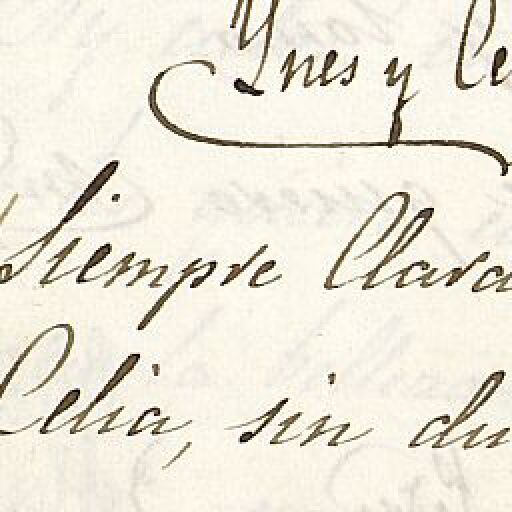 Ynes y Ce
Siempre Clara
Celia, sin du